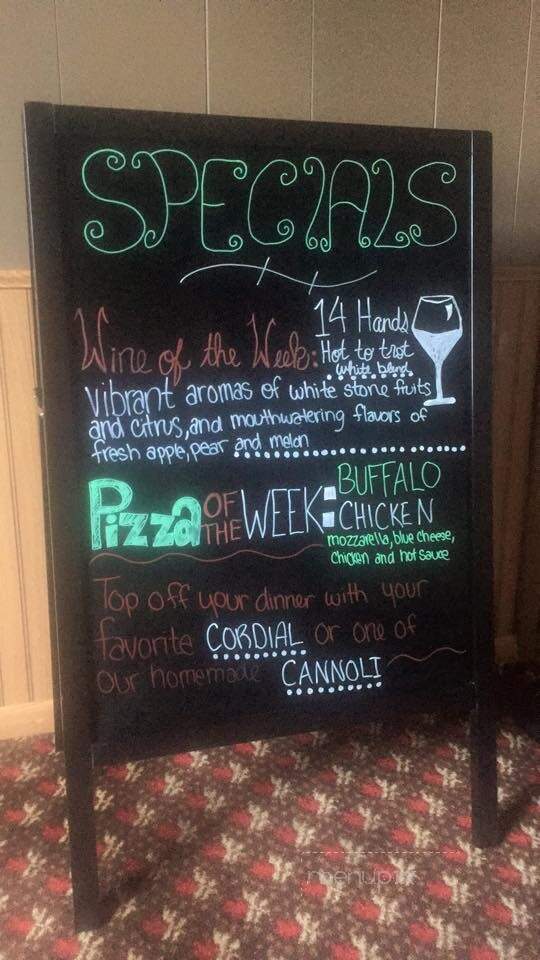 SPECIALS
Wine of the Week: 14 Hands
Hot to trot
white blend
Vibrant aromas of white stone fruits
and citrus, and mouthwatering flavors of
fresh apple, pear and melon
Pizza OF THE WEEK: BUFFALO
CHICKEN
mozzarella, blue cheese,
chicken and hot sauce
Top off your dinner with your
favorite CORDIAL or one of
our homemade CANNOLI